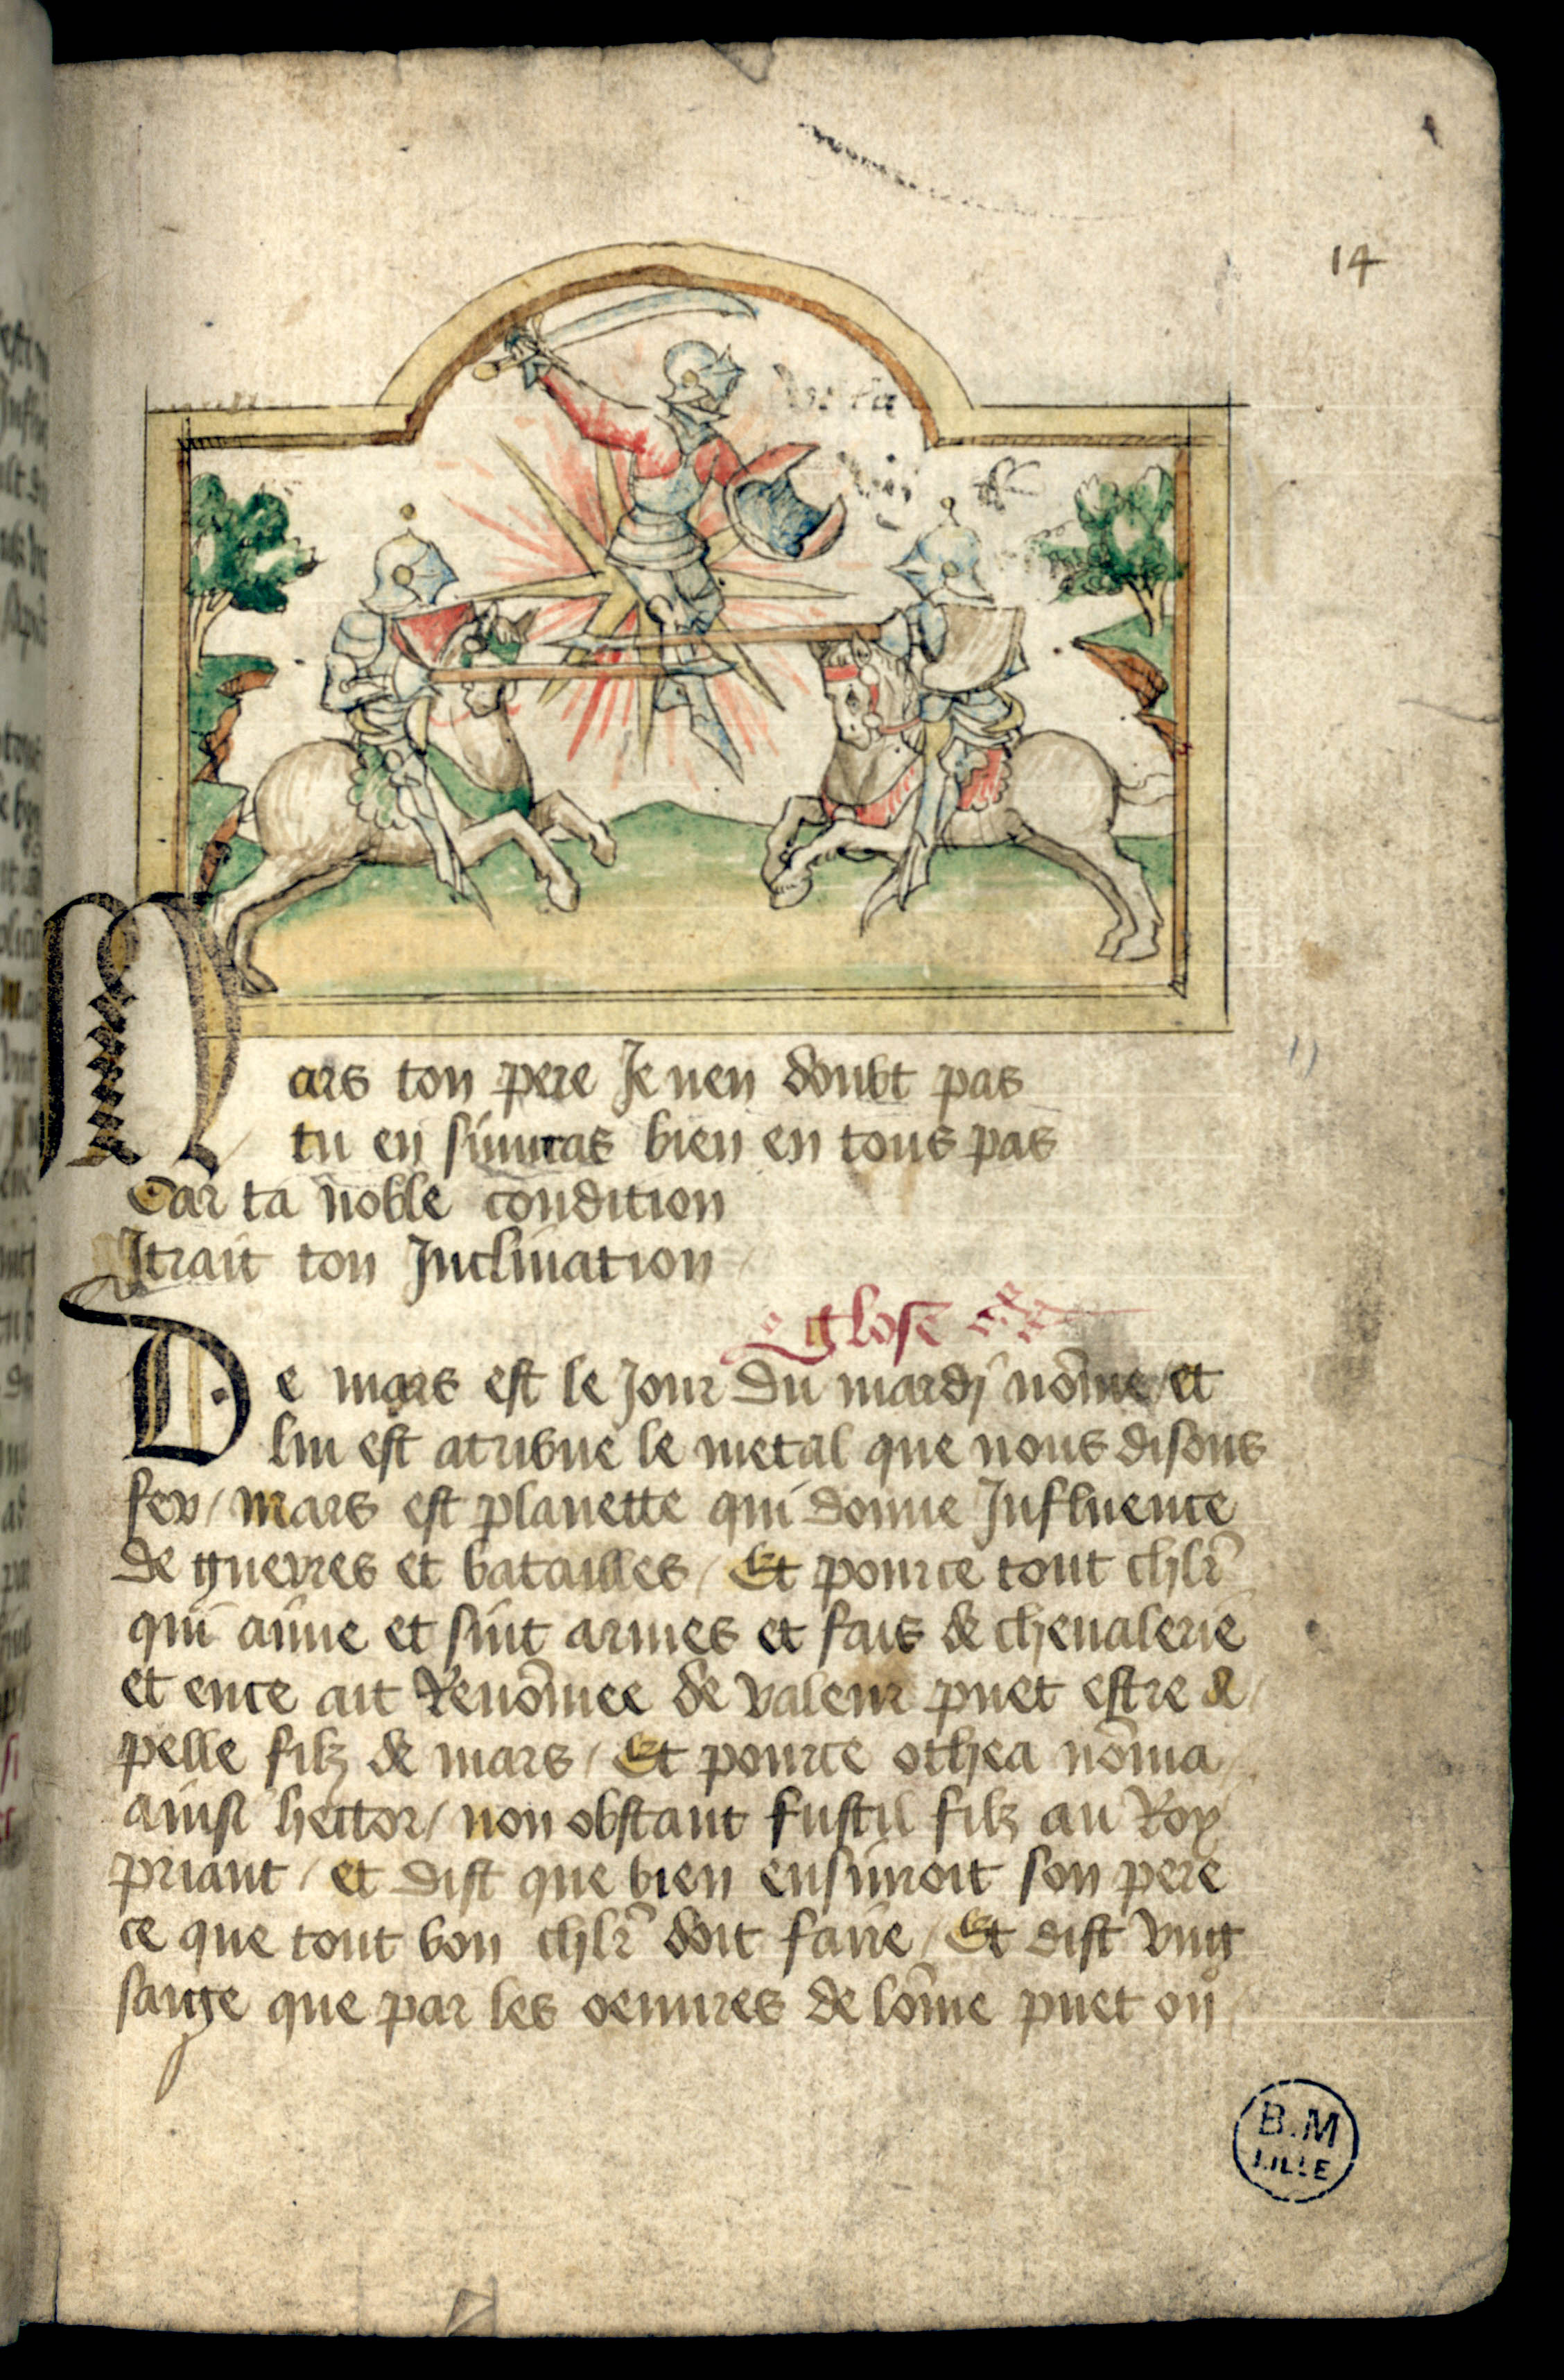 14
Mars ton pere Je nen doubt pas
tu en suiuras bien en tous pas
Car ta noble condition
Itrait ton Inclination
glose
De mars est le Jour du mardj nōme / et
lui est atribue le metal que nous disons
fer / mars est planette qui donne Influence
de guerres et batailles / Et pource tout chlr̄
qui aime et suit armes et fais de cheualerie
et ence ait Renōmee de valeur puet estre a /
pelle filz de mars / Et pource othea nōma
ainsi hector / non obstant fustil filz au Roy
priant / et dist que bien ensuiuroit son pere
ce que tout bon chlr̄ doit faire / Et dist vng
saige que par les oeuures de lōme puet on
B.M
LILLE